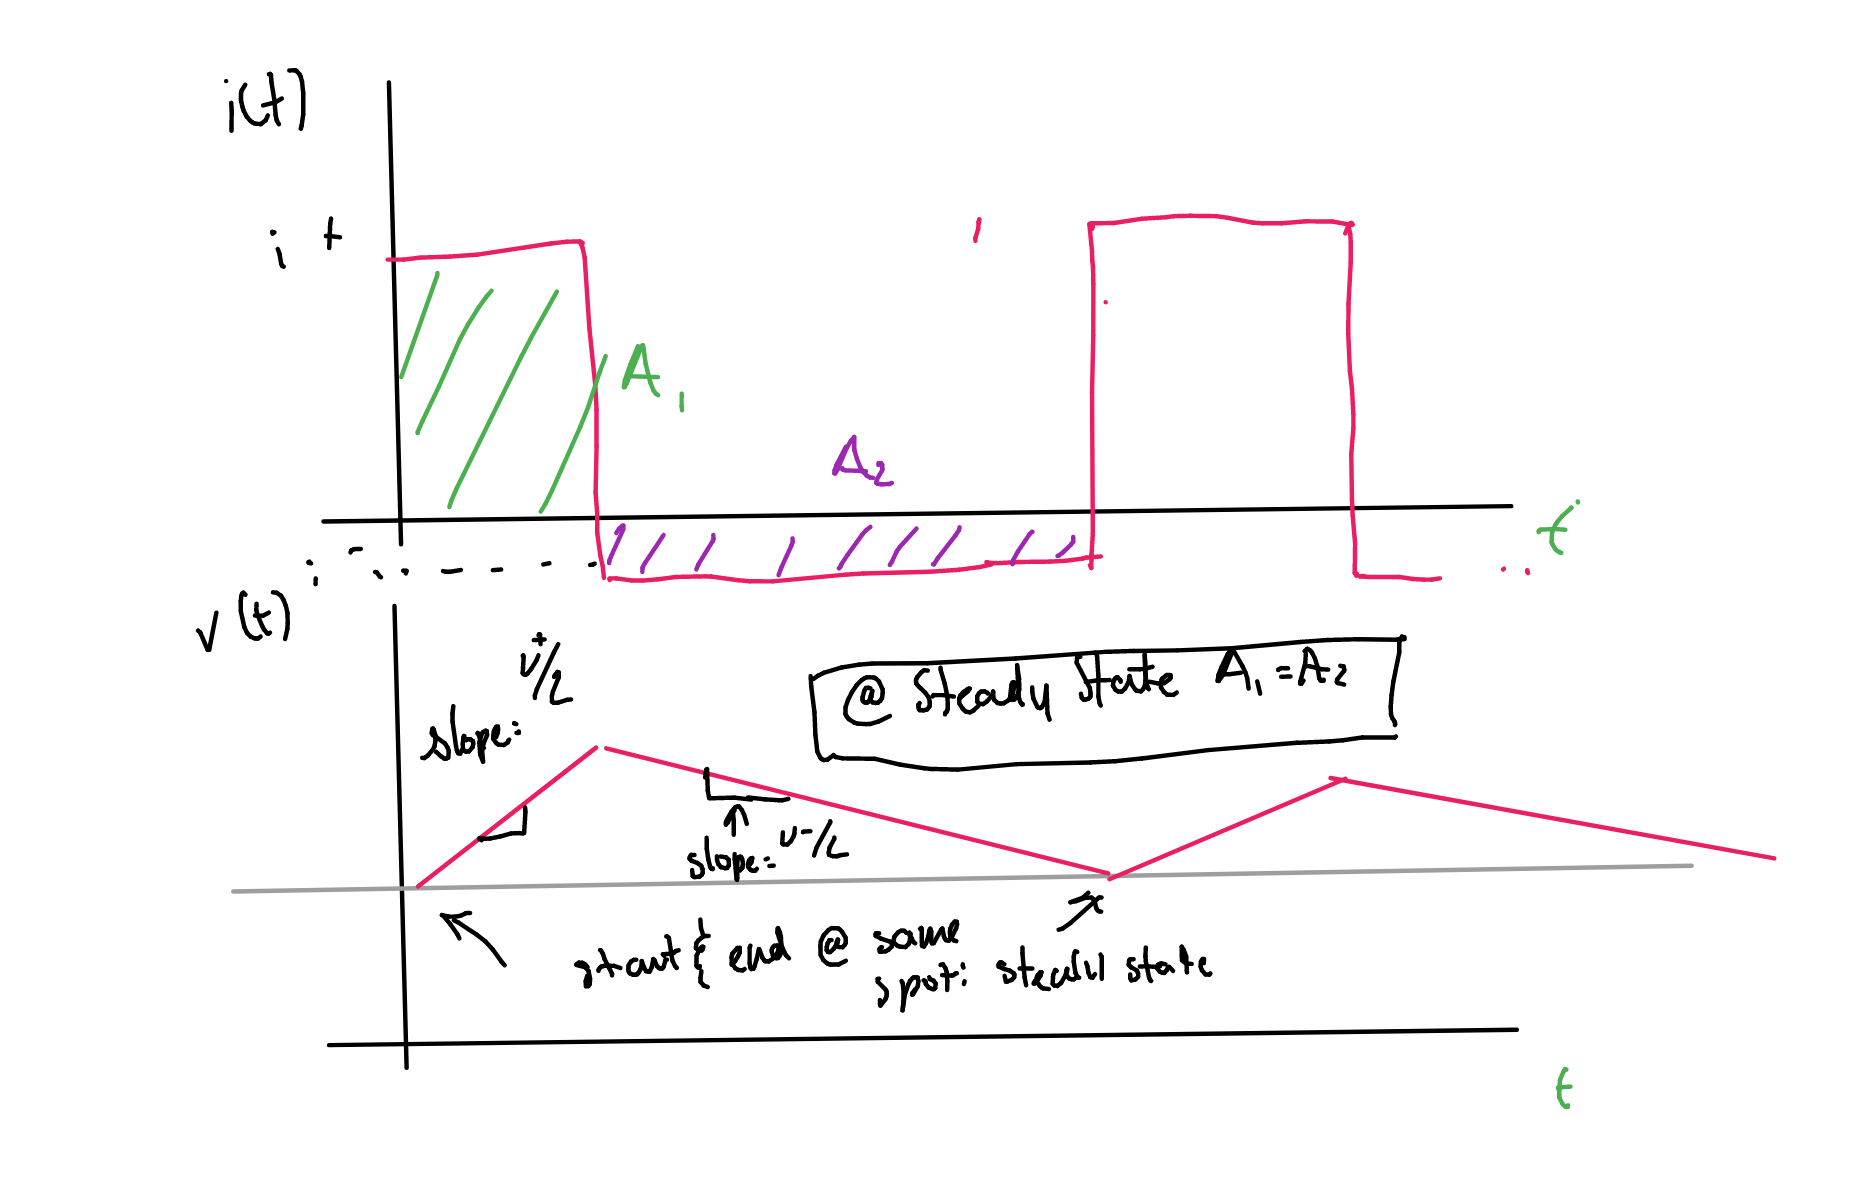 i(t)
i +
A1
A2
t
i -
v(t)
v+/L
slope:
@ Steady State A1 = A2
slope = v-/L
start & end @ same
spot: steady state
t